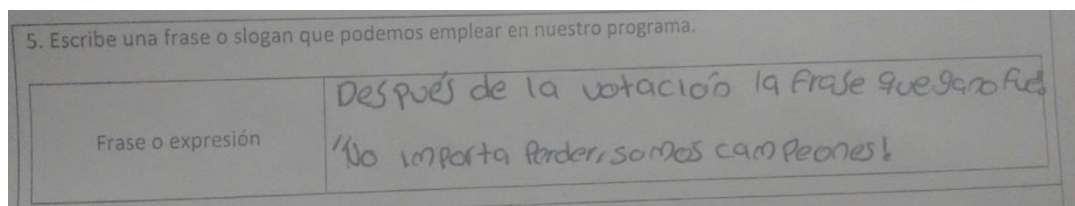 5. Escribe una frase o slogan que podemos emplear en nuestro programa.
Frase o expresión
Después de la votación la frase que gano fue:
"No importa perder, somos campeones!